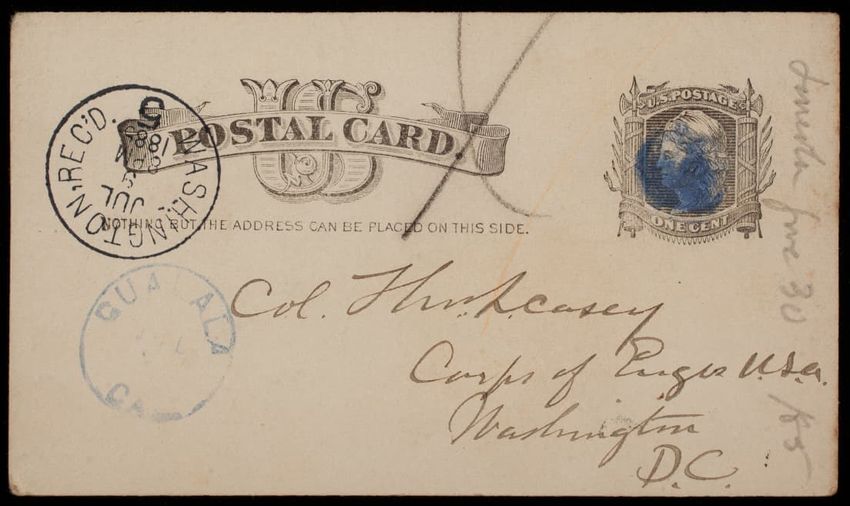 US
POSTAL CARD.
NOTHING BUT THE ADDRESS CAN BE PLACED ON THIS SIDE.
U.S. POSTAGE
ONE CENT
WASHINGTON, REC'D.
JUL
5
1885
GUALALA
CAL
Col. Thos. L. Casey
Corps of Engrs U.S.A.
Washington
D.C.
June 30 /85